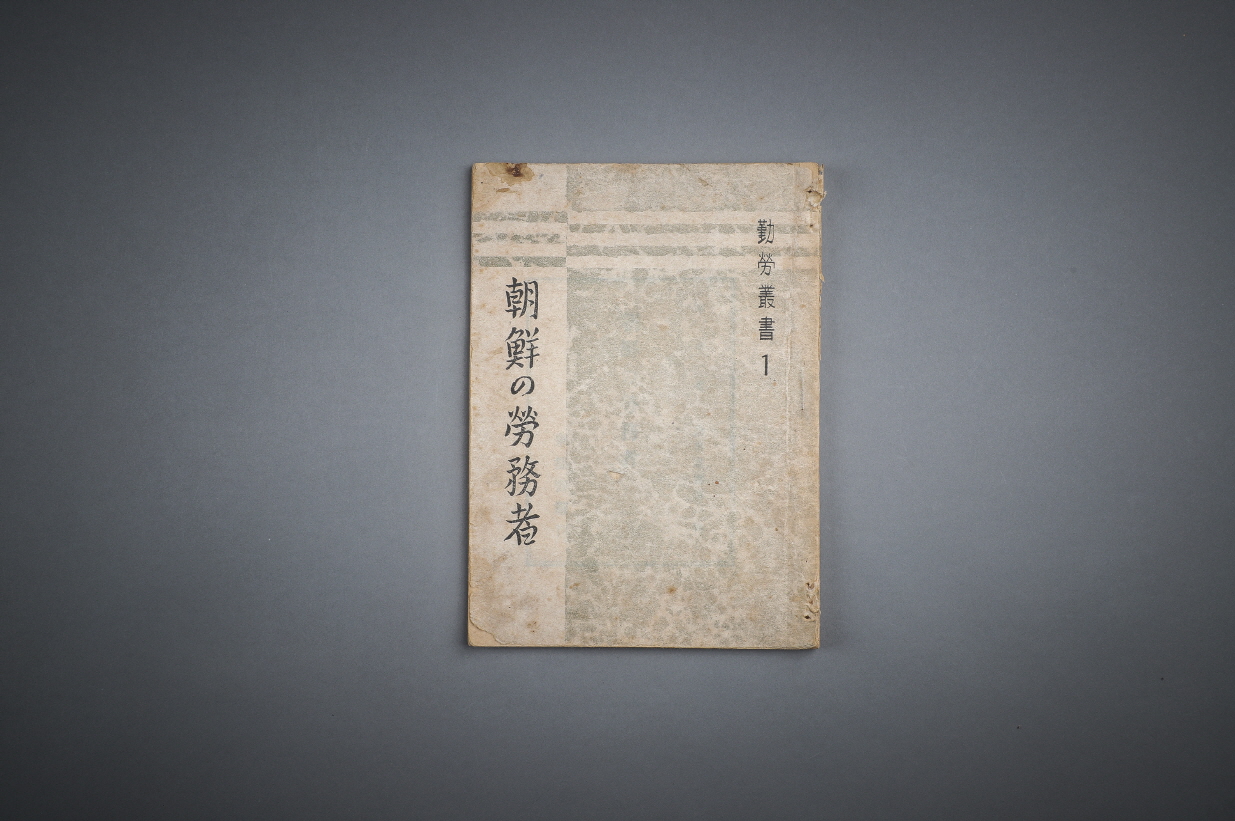 勤勞叢書1
朝鮮の勞務者